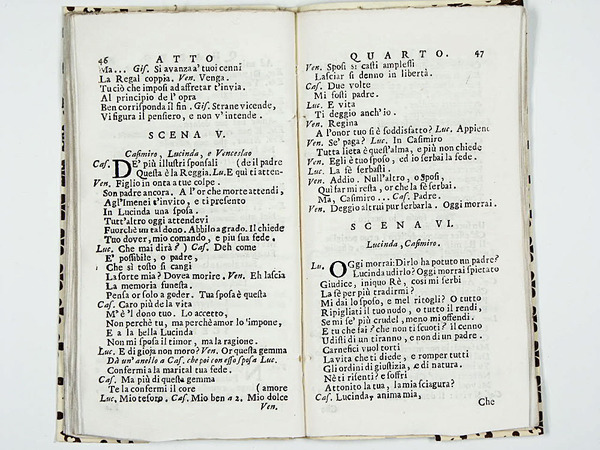 46 ATTO
Ma... Gis. Si avanza a' tuoi cenni
La Regal coppia. Ven. Venga.
Tu ciò che imposi ad affretar t'invia.
Al principio de l'opra
Ben corrisponda il fin. Gis. Strane vicende,
Vi figura il pensiero, e non v'intende.
SCENA V.
Casimiro, Lucinda, e Venceslao
Cas. DE' più illustri sponsali (de il padre
Questa è la Reggia. Lu. E qui ti atten-
Ven. Figlio in onta a tue colpe.
Son padre ancora. A l'or che morte attendi,
Agl'Imenei t'invito, e ti presento
In Lucinda una sposa.
Tutt'altro oggi attendevi
Fuorchè un tal dono. Abbilo a grado. Il chiede
Tuo dover, mio comando, e piu sua fede.
Luc. Che mai dirà?) Cas. Deh come
E' possibile, o padre,
Che sì tosto si cangi
La sorte mia? Dovea morire. Ven. Eh lascia
La memoria funesta.
Pensa or solo a goder. Tua sposa è questa
Cas. Caro più de la vita
M'è'l dono tuo. Lo accetto,
Non perchè tu, ma perchè amor lo 'impone,
E a la bella Lucinda
Non mi sposa il timor, ma la ragione.
Luc. E di gioja non moro? Ven. Or questa gemma
Dà un' anello a Cas. che poi con esso sposa Luc.
Confermi a la marital tua fede.
Cas. Ma più di questa gemma
Te la confermi il core (amore
Luc. Mio tesoro. Cas. Mio ben a 2. Mio dolce
Ven.
QUARTO. 47
Ven. Sposi sì casti amplessi
Lasciar si denno in libertà.
Cas. Due volte
Mi fosti padre.
Luc. E vita
Ti deggio anch'io.
Ven. Regina
A l'onor tuo si è soddisfatto? Luc. Appieno
Ven. Se' paga? Luc. In Casimiro
Tutta lieta è quest'alma, e più non chiede
Ven. Egli è tuo sposo, ed io serbai la fede.
Luc. La fè serbasti.
Ven. Addio. Null'altro, o sposi,
Qui far mi resta, or che la fè serbai.
Ma, Casimiro... Cas. Padre.
Ven. Deggio altrui pur serbarla. Oggi morrai.
SCENA VI.
Lucinda, Casimiro.
Lu. OGgi morrai: Dirlo ha potuto un padre?
Lucinda udirlo? Oggi morrai spietato
Giudice, iniquo Rè, così mi serbi
La fè per più tradirmi?
Mi dai lo sposo, e mel ritogli? O tutto
Ripigliati il tuo nodo, o tutto il rendi,
Se mi se' più crudel, meno mi offendi.
E tu che fai? che non ti scuoti? il cenno
Udisti di un tiranno, e non di un padre.
Carnefici vuol torti
La vita che ti diede, e romper tutti
Gli ordini di giustizia, e di natura.
Nè ti risenti? e soffri
Attonito la tua, la mia sciagura?
Cas. Lucinda, anima mia,
Che